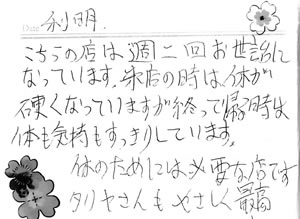 Date 利明.
こちらの店は週二回お世話に
なっています。来店の時は、体が
硬くなっていますが終って帰る時は
体も気持もすっきりしています。
体のためには必要な店です
タリヤさんも やさしく 最高